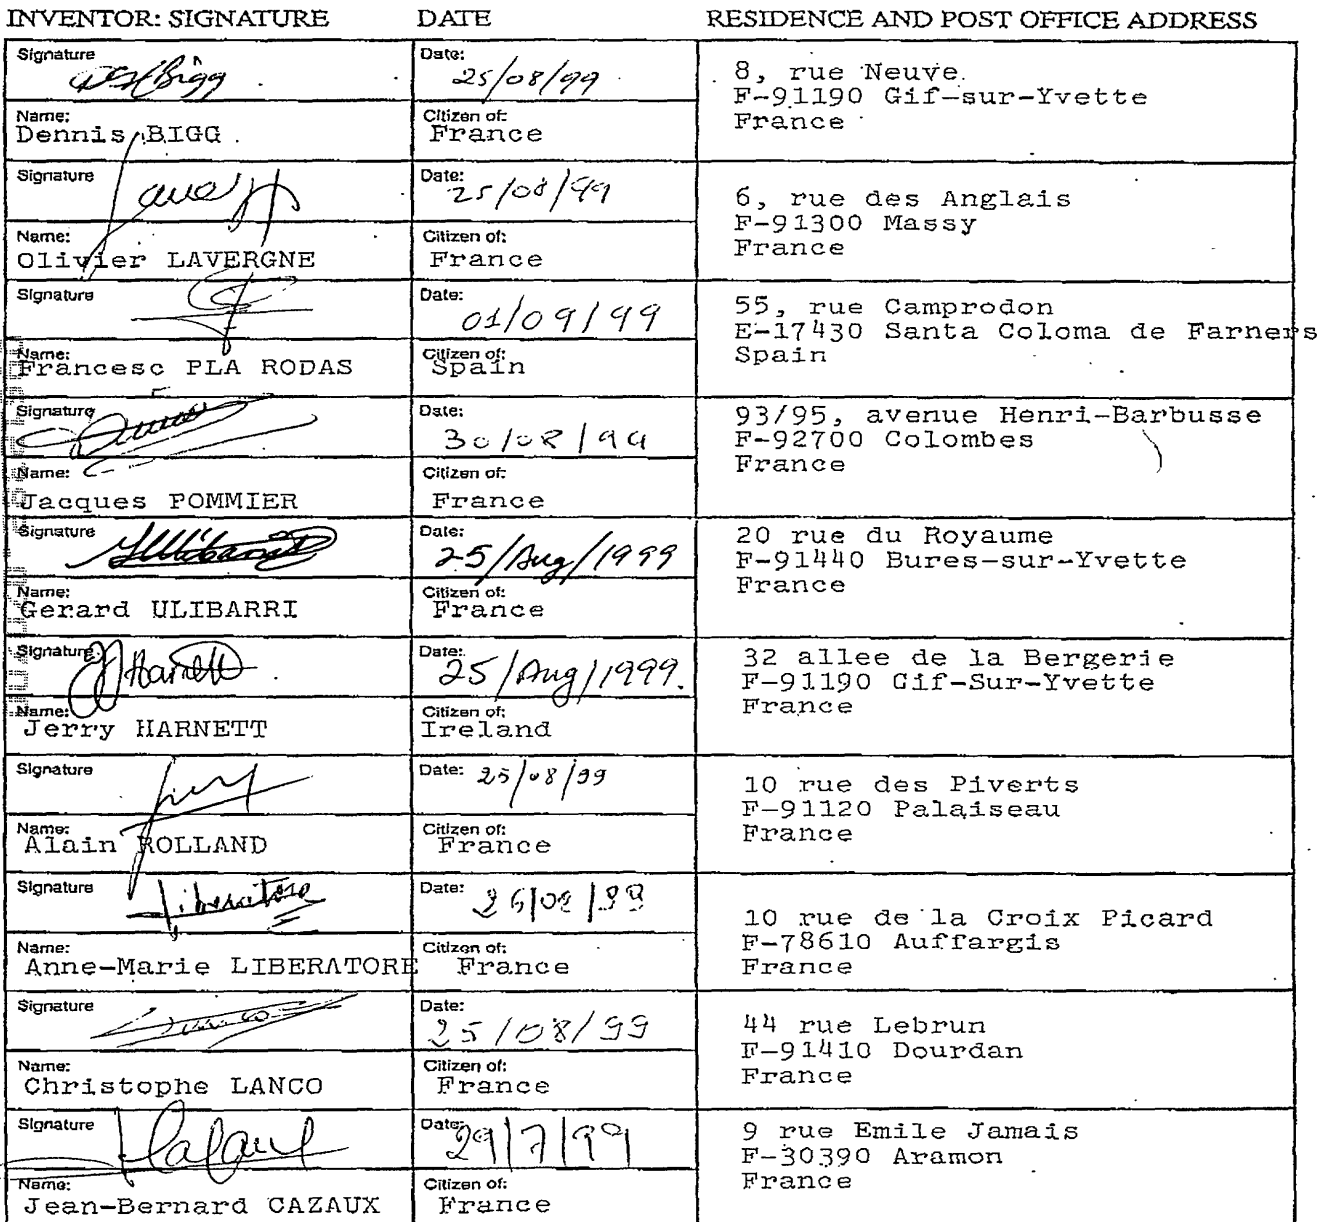 INVENTOR: SIGNATURE DATE RESIDENCE AND POST OFFICE ADDRESS
Signature
Bigg
Date:
25/08/99
8, rue Neuve
F-91190 Gif-sur-Yvette
France
Name:
Dennis BIGG
Citizen of:
France
Signature
Date:
25/08/99
6, rue des Anglais
F-91300 Massy
France
Name:
Olivier LAVERGNE
Citizen of:
France
Signature
Date:
01/09/99
55, rue Camprodon
E-17430 Santa Coloma de Farners
Spain
Name:
Francesc PLA RODAS
Citizen of:
Spain
Signature
Date:
30/08/99
93/95, avenue Henri-Barbusse
F-92700 Colombes
France
Name:
Jacques POMMIER
Citizen of:
France
Signature
Date:
25/Aug/1999
20 rue du Royaume
F-91440 Bures-sur-Yvette
France
Name:
Gerard ULIBARRI
Citizen of:
France
Signature
Harnett
Date:
25/Aug/1999.
32 allee de la Bergerie
F-91190 Gif-Sur-Yvette
France
Name:
Jerry HARNETT
Citizen of:
Ireland
Signature
Date:
25/08/99
10 rue des Piverts
F-91120 Palaiseau
France
Name:
Alain ROLLAND
Citizen of:
France
Signature
Liberatore
Date:
26/08/99
10 rue de la Croix Picard
F-78610 Auffargis
France
Name:
Anne-Marie LIBERATORE
Citizen of:
France
Signature
Date:
25/08/99
44 rue Lebrun
F-91410 Dourdan
France
Name:
Christophe LANCO
Citizen of:
France
Signature
Date:
29/7/99
9 rue Emile Jamais
F-30390 Aramon
France
Name:
Jean-Bernard CAZAUX
Citizen of:
France